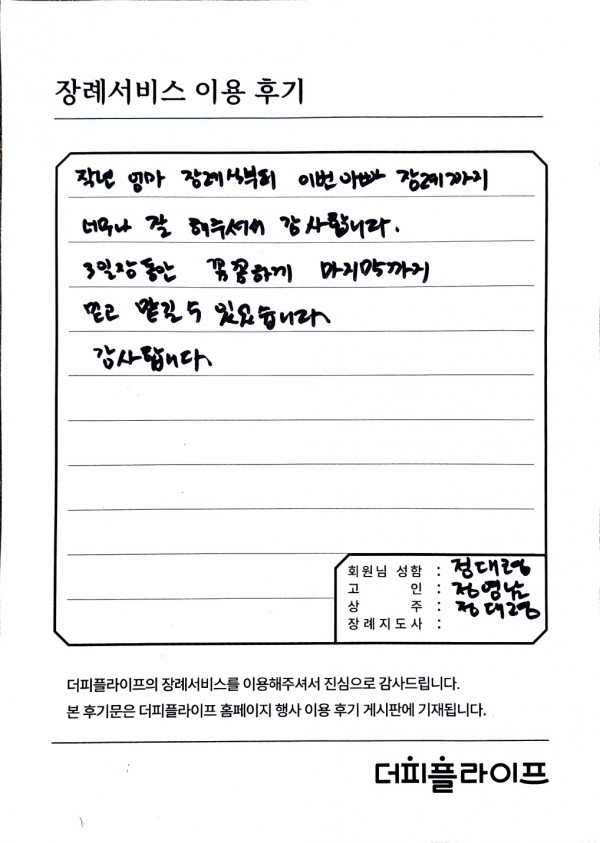 장례서비스 이용 후기
작년 엄마 장례식부터 이번 아빠 장례까지
너무나 잘 해주셔서 감사합니다.
3일장동안 꼼꼼하게 마지막까지
믿고 맡길 수 있었습니다.
감사합니다.
회원님 성함 : 정대령
고 인 : 정영남
상 주 : 정대령
장례지도사 :
더피플라이프의 장례서비스를 이용해주셔서 진심으로 감사드립니다.
본 후기문은 더피플라이프 홈페이지 행사 이용 후기 게시판에 기재됩니다.
더피플라이프